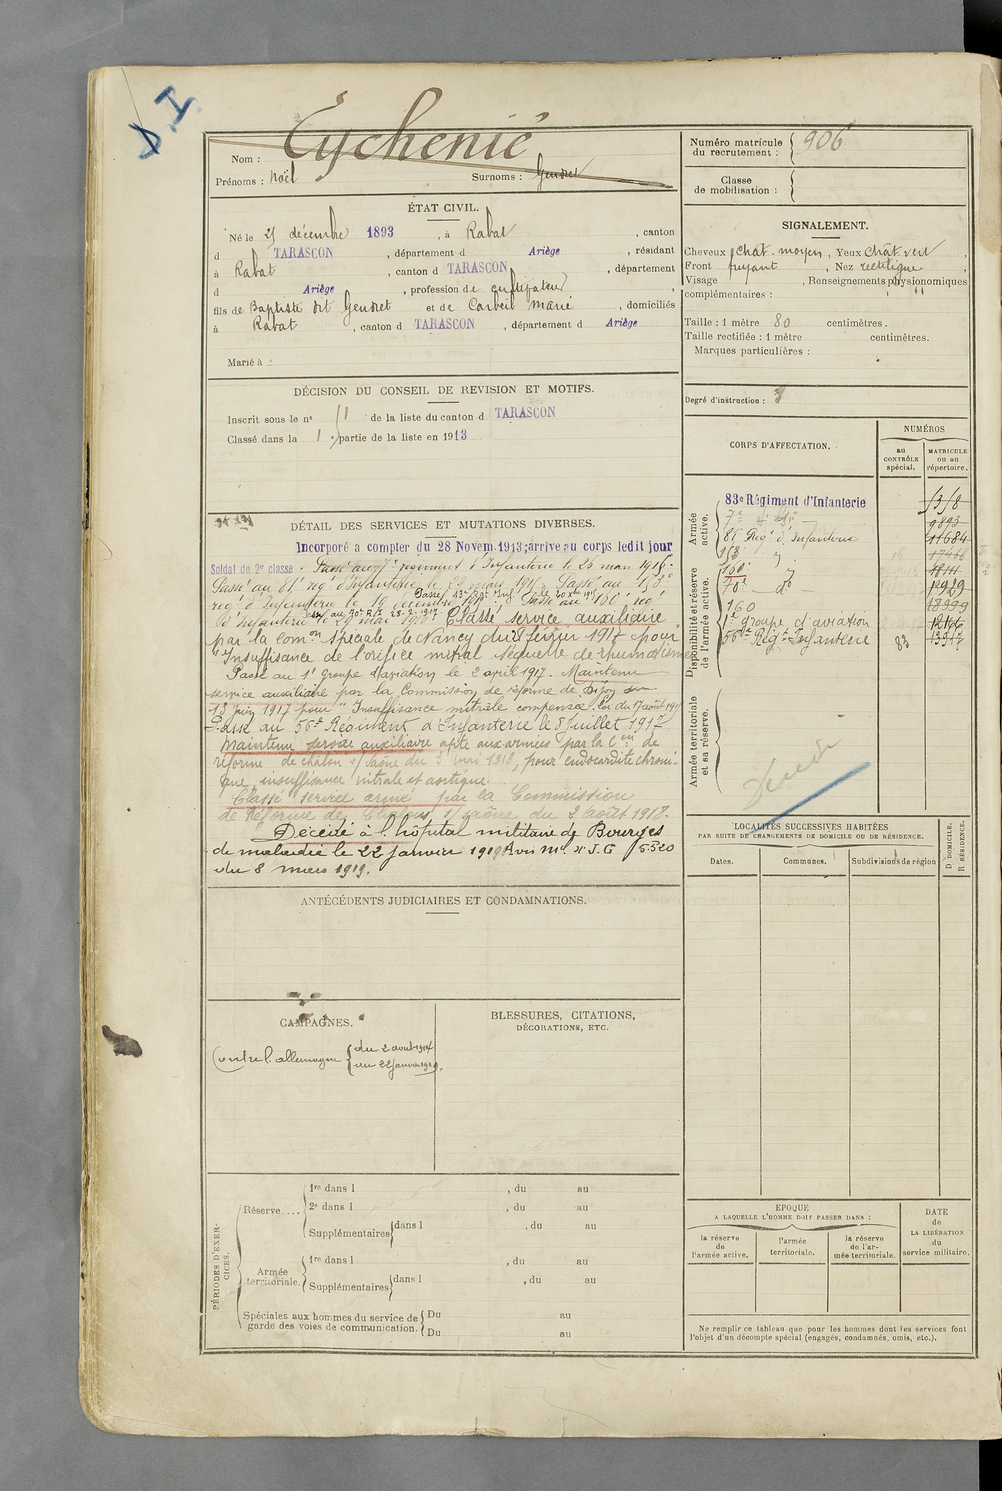 Eychenié
Nom :
Prénoms : Noël Surnoms : Gendret
Numéro matricule du recrutement : 906
Classe de mobilisation :
ÉTAT CIVIL.
Né le 25 décembre 1893, à Rabat, canton
d TARASCON, département d Ariège, résidant
à Rabat, canton d TARASCON, département
d Ariège, profession de cultivateur,
fils de Baptiste dit Gendret et de Corbeil Marie, domiciliés
à Rabat, canton d TARASCON, département d Ariège
Marié à
SIGNALEMENT.
Cheveux chât. moyen, Yeux chât. vert,
Front fuyant, Nez rectiligne,
Visage , Renseignements physionomiques
complémentaires :
Taille : 1 mètre 80 centimètres.
Taille rectifiée : 1 mètre centimètres.
Marques particulières :
Degré d'instruction : 3
DÉCISION DU CONSEIL DE REVISION ET MOTIFS.
Inscrit sous le n° 11 de la liste du canton d TARASCON
Classé dans la 1 e partie de la liste en 1913
DÉTAIL DES SERVICES ET MUTATIONS DIVERSES.
Incorporé a compter du 28 Novem. 1913; arrive au corps ledit jour
Soldat de 2e classe. Passé au 7e régiment d'Infanterie le 26 mars 1915.
Passé au 81e rég. d'Infanterie le 29 mars 1915. Passé au 158e
rég. d'Infanterie le 16 décembre 191 Passé au 160e rég.
d'Infanterie le 29 mai 191 Classé service auxiliaire
par la com.on spéciale de Nancy du 8 février 1917 pour
"Insuffisance de l'orifice mitral séquelle de rhumatismes
Passé au 1e groupe d'aviation le 2 avril 1917. Maintenu
service auxiliaire par la Commission de réforme de Dijon du
13 Juin 1917 pour "Insuffisance mitrale compensée. Loi du 17 août 1915
Passé au 56e Régiment d'Infanterie le 8 Juillet 1917
Maintenu service auxiliaire apte aux armées par la Con de
réforme de Châlon s/ Saône du 3 mai 1918, pour endocardite chroni-
que, insuffisance mitrale et aortique
Classé service armé par la Commission
de Réforme de Châlons s/ Saône du 2 août 1918.
Décédé à l'hôpital militaire de Bourges
de maladie le 22 Janvier 1919 Avis ml. N J.G 5320
du 8 mars 1919.
CORPS D'AFFECTATION.
NUMÉROS
au CONTRÔLE spécial.
MATRICULE ou au répertoire.
Armée active.
Disponibilité et réserve de l'armée active.
Armée territoriale et sa réserve.
83e Régiment d'Infanterie
7e d° d°
9893
81e Rég. d'Infanterie 11684
158 "
160 "
70e d°
160 18999
1e groupe d'aviation
56e Rég. Infanterie 83
LOCALITÉS SUCCESSIVES HABITÉES
PAR SUITE DE CHANGEMENTS DE DOMICILE OU DE RÉSIDENCE.
D. DOMICILE.
R. RÉSIDENCE.
Dates. Communes. Subdivisions de région
ANTÉCÉDENTS JUDICIAIRES ET CONDAMNATIONS.
CAMPAGNES.
Contre l'allemagne du 2 août 1914
au 22 janvier 1919.
BLESSURES, CITATIONS,
DÉCORATIONS, ETC.
PÉRIODES D'EXERCICES.
Réserve....
1re dans l , du au
2e dans l , du au
Supplémentaires dans l , du au
Armée territoriale.
1re dans l , du au
Supplémentaires dans l , du au
Spéciales aux hommes du service de garde des voies de communication.
Du au
Du au
EPOQUE
A LAQUELLE L'HOMME DOIT PASSER DANS :
la réserve de l'armée active.
l'armée territoriale.
la réserve de l'armée territoriale.
DATE
de
LA LIBÉRATION
du
service militaire.
Ne remplir ce tableau que pour les hommes dont les services font
l'objet d'un décompte spécial (engagés, condamnés, omis, etc.).